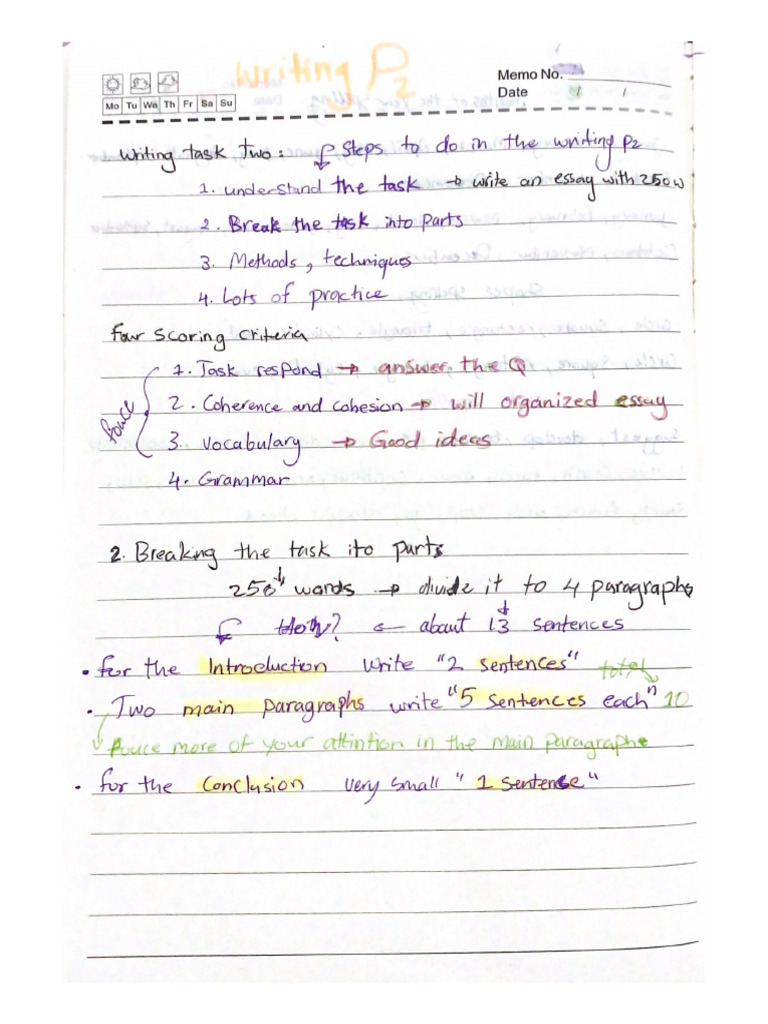 writing P2
Memo No.
Mo Tu We Th Fr Sa Su
Date / /
Writing task Two: Steps to do in the writing P2
1. understand the task → write an essay with 250w
2. Break the task into parts
3. Methods, techniques
4. Lots of practice
four scoring criteria
1. Task respond → answer the Q
2. Coherence and cohesion → will organized essay
3. vocabulary → Good ideas
4. Grammar
fouce
2. Breaking the task ito parts
250 words → divide it to 4 paragraphs
How? ← about 13 sentences
• for the Introduction write "2 sentences"
total
• Two main paragraphs write "5 sentences each" 10
Fouce more of your attintion in the main paragraphe
• for the Conclusion very small "1 sentense"